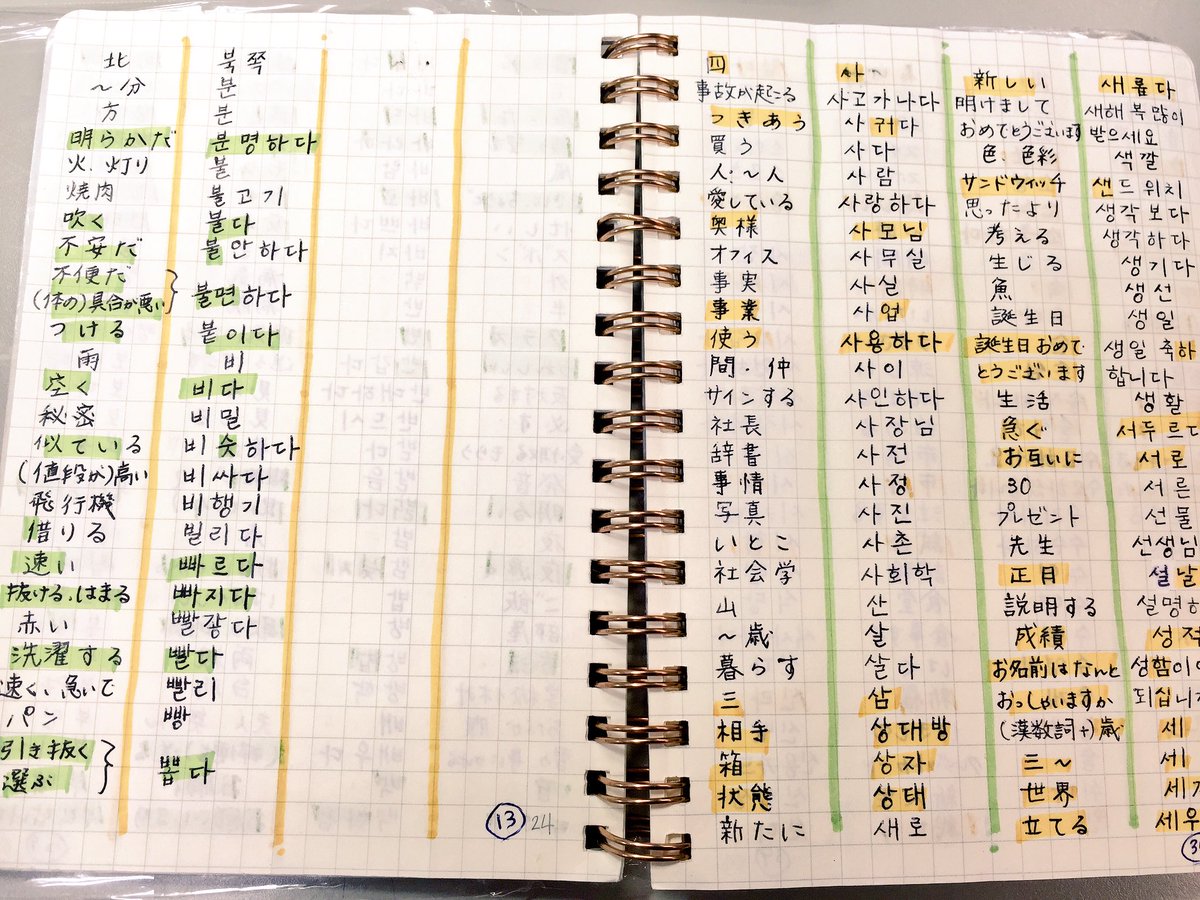 北 북쪽
～分 분
方 분
明らかだ 분명하다
火、灯り 불
焼肉 불고기
吹く 불다
不安だ 불안하다
不便だ
(体の)具合が悪い 불편하다
つける 붙이다
雨 비
空く 비다
秘密 비밀
似ている 비슷하다
(値段が)高い 비싸다
飛行機 비행기
借りる 빌리다
速い 빠르다
抜ける、はまる 빠지다
赤い 빨갛다
洗濯する 빨다
速く、急いで 빨리
パン 빵
引き抜く
選ぶ 뽑다
13 24
四 사
事故が起こる 사고가나다
つきあう 사귀다
買う 사다
人、～人 사람
愛している 사랑하다
奥様 사모님
オフィス 사무실
事実 사실
事業 사업
使う 사용하다
間・仲 사이
サインする 사인하다
社長 사장님
辞書 사전
事情 사정
写真 사진
いとこ 사촌
社会学 사회학
山 산
～歳 살
暮らす 살다
三 삼
相手 상대방
箱 상자
状態 상태
新たに 새로
新しい 새롭다
明けまして 새해 복 많이
おめでとうございます 받으세요
色、色彩 색깔
サンドウィッチ 샌드위치
思ったより 생각보다
考える 생각하다
生じる 생기다
魚 생선
誕生日 생일
誕生日おめで 생일 축하
とうございます 합니다
生活 생활
急ぐ 서두르다
お互いに 서로
30 서른
プレゼント 선물
先生 선생님
正月 설날
説明する 설명하
成績 성적
お名前はなんと 성함이
おっしゃいますか 되십니
(漢数詞+)歳 세
三～ 세
世界 세
立てる 세우